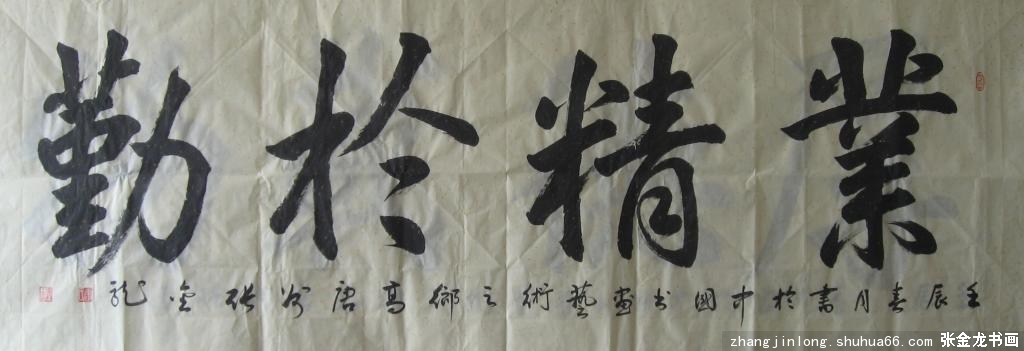 業精於勤
壬辰春月書於中國书画藝術之鄉高唐谷张金龙
zhangjinlong.shuhua66.com 张金龙书画